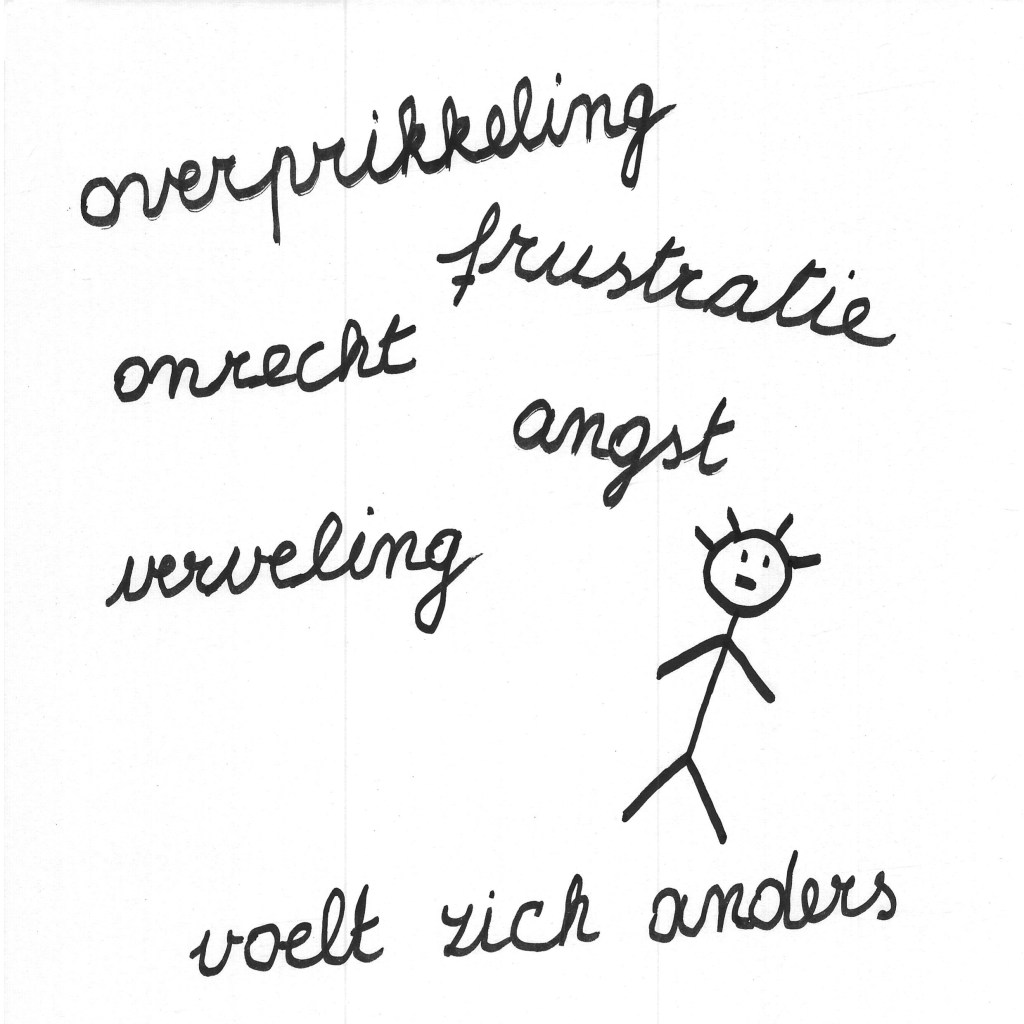 overprikkeling
frustratie
onrecht
angst
verveling
voelt zich anders